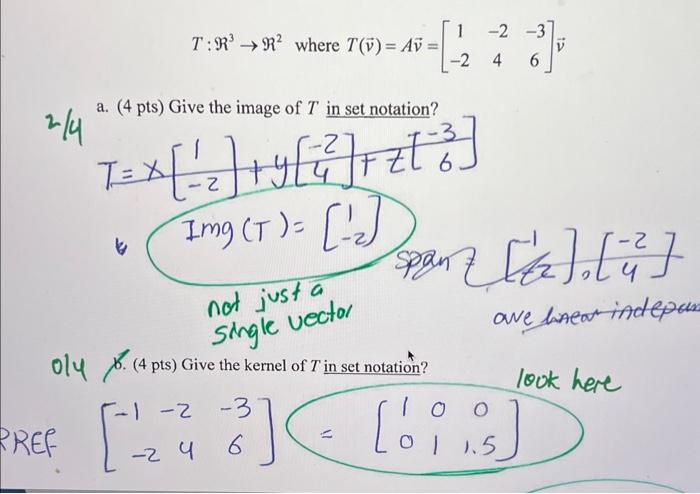 T : ℜ³ → ℜ² where T(v⃗) = Av⃗ = [1 -2 -3; -2 4 6] v⃗
a. (4 pts) Give the image of T in set notation?
2/4
T = x[1; -2] + y[-2; 4] + z[-3; 6]
Img (T) = [1; -2]
span { [-1; 2], [-2; 4] }
not just a
single vector
are linear
0/4 b. (4 pts) Give the kernel of T in set notation?
look here
RREF [-1 -2 -3; -2 4 6] = [1 0 0; 0 1 1.5]